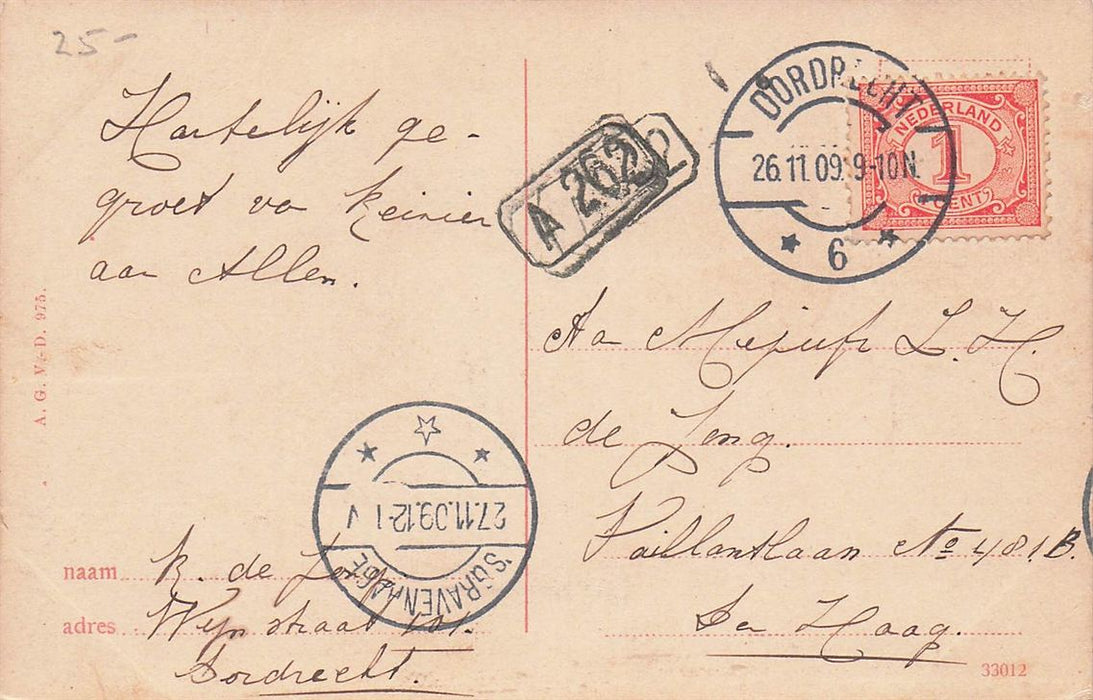 25-
Hartelijk ge-
groet va Reinier
aan Allen.
A. G. V.-D. 975.
naam R. de Jong
adres Wijnstraat 101.
Dordrecht.
'S GRAVENHAGE
27.11.09.12-1 V
A 262
DORDRECHT
26.11.09. 9-10N.
6
NEDERLAND
1
CENT
Aa Mejufr L. H.
de Jong.
Vaillantlaan No 481B.
Den Haag.
33012